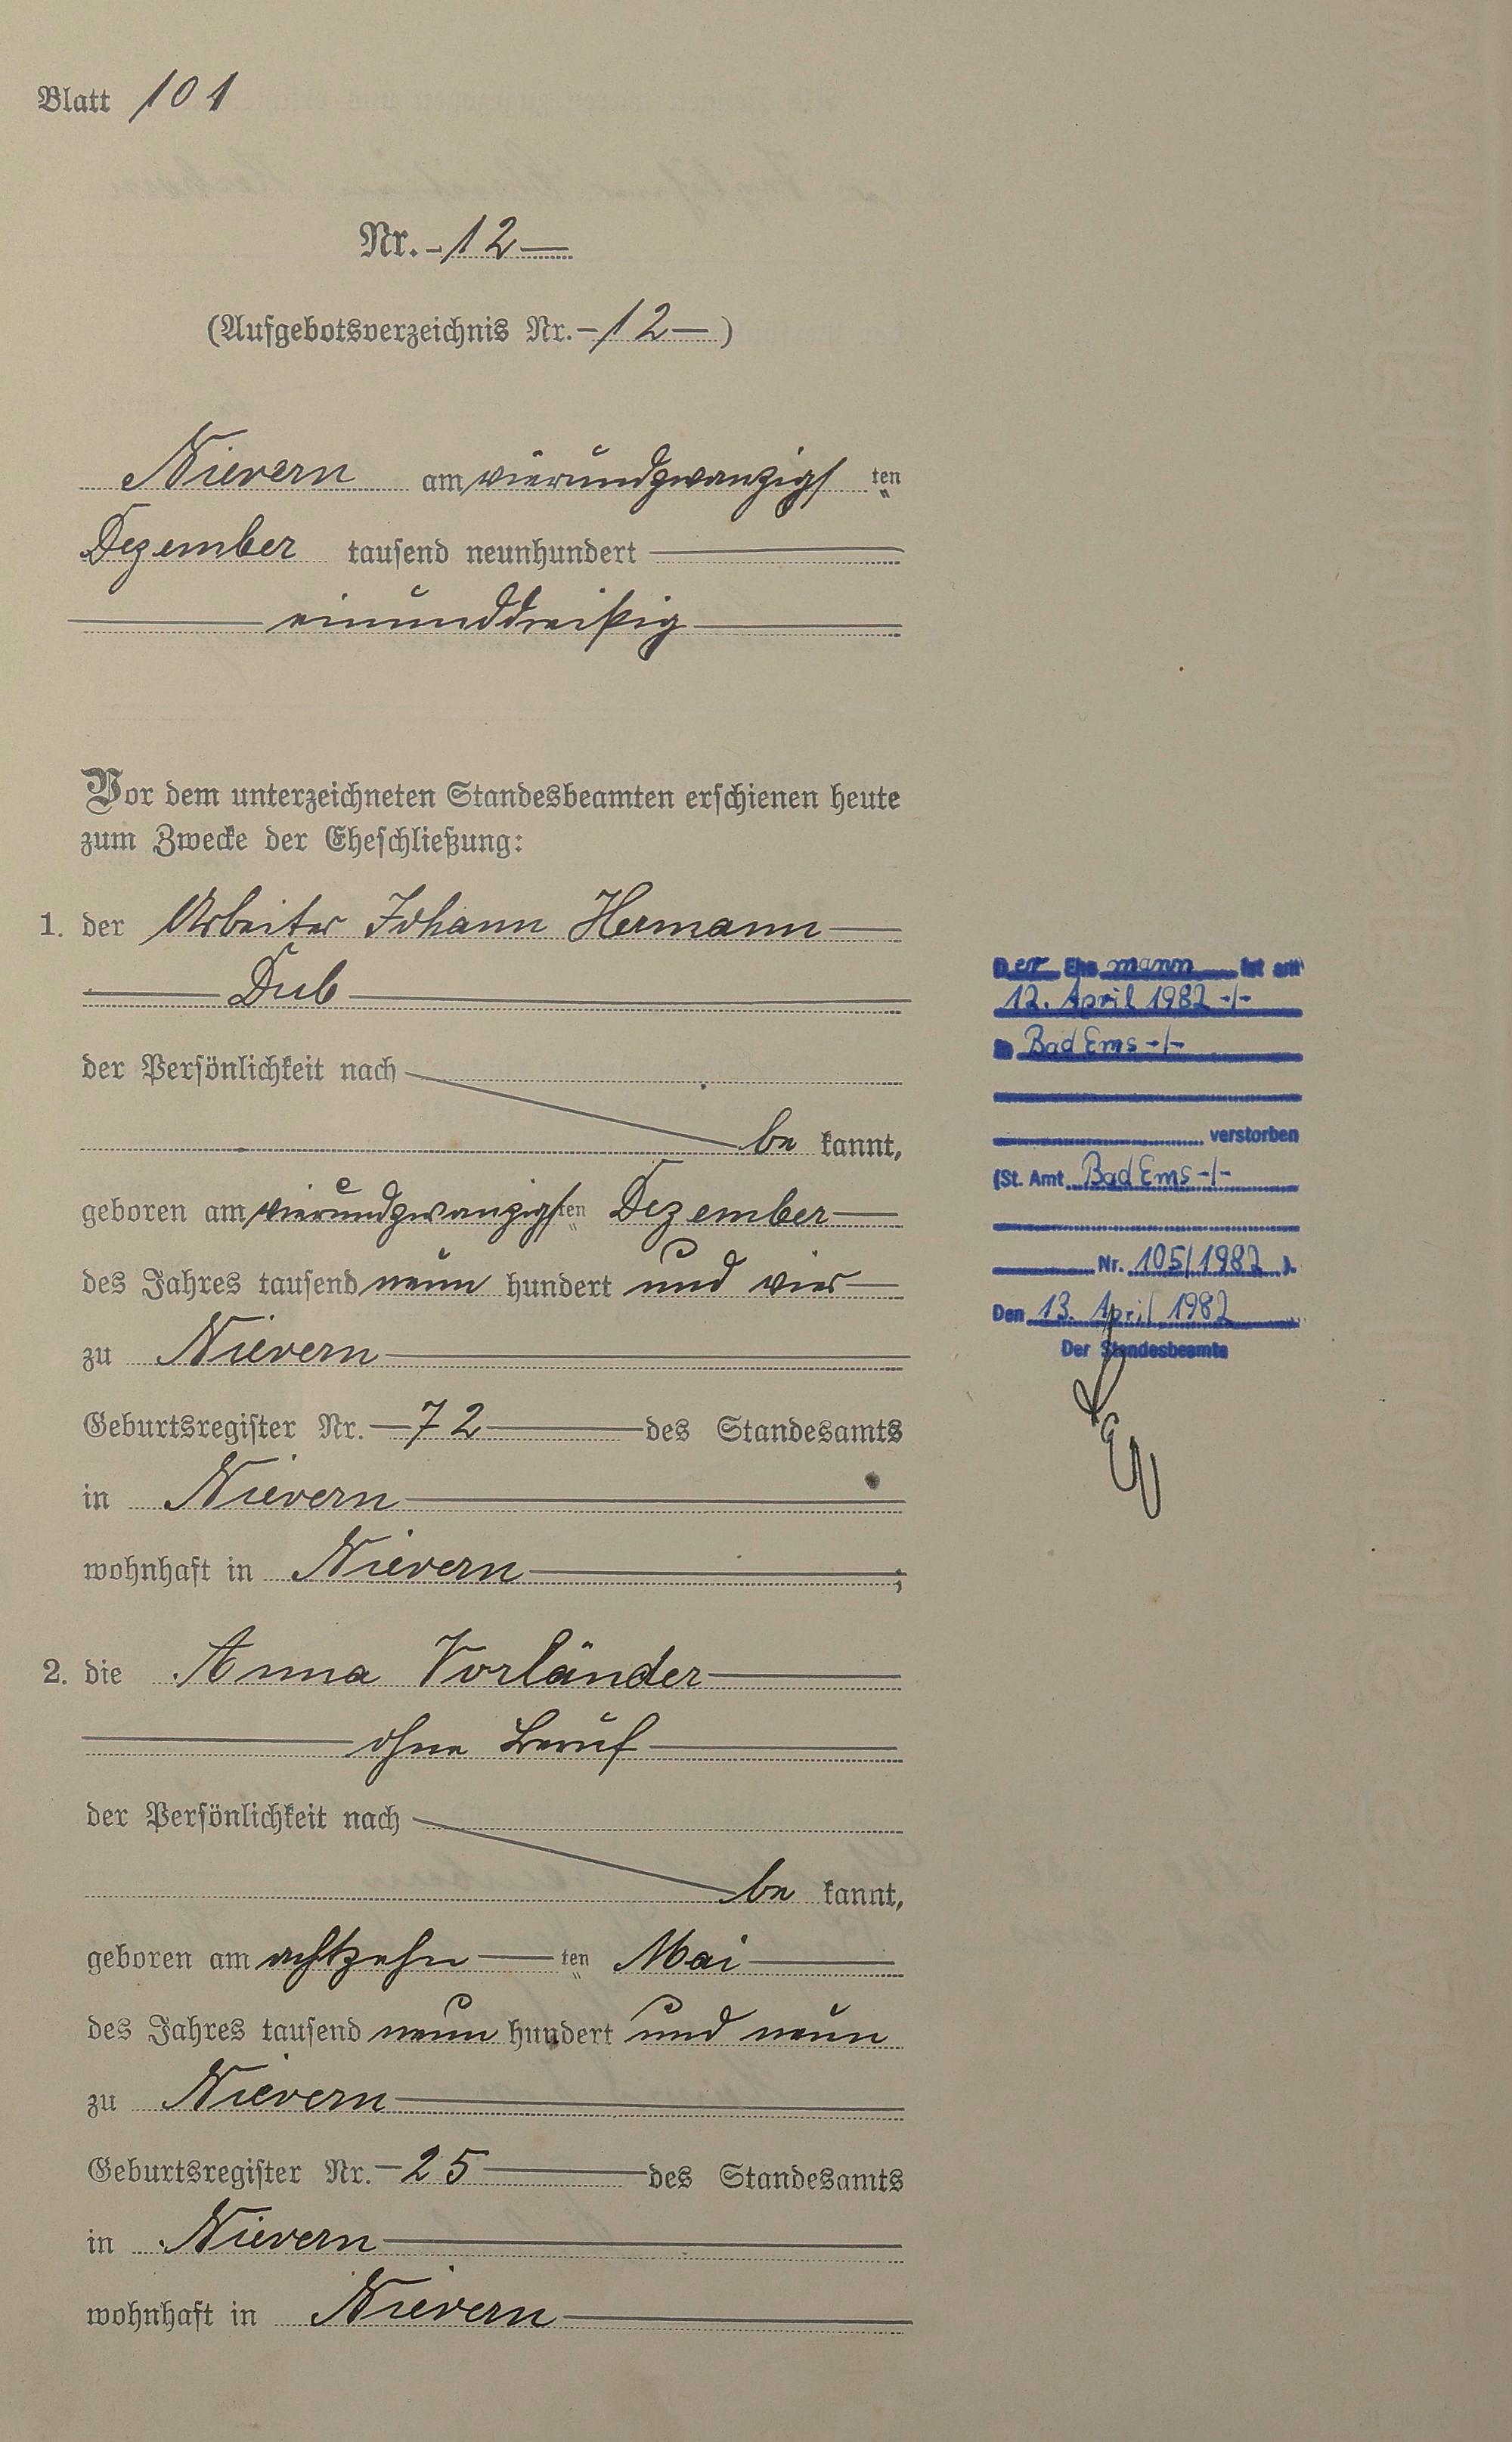 Blatt 101
Nr. -12-
(Aufgebotsverzeichnis Nr. -12-)
Nievern am vierundzwanzigsten
Dezember tausend neunhundert
einunddreißig
Vor dem unterzeichneten Standesbeamten erschienen heute
zum Zwecke der Eheschließung:
1. der Arbeiter Johann Hermann
Dub
der Persönlichkeit nach
be kannt,
geboren am vierundzwanzigsten Dezember
des Jahres tausend neun hundert und vier
zu Nievern
Geburtsregister Nr. -72- des Standesamts
in Nievern
wohnhaft in Nievern;
2. die Anna Vorländer
ohne Beruf
der Persönlichkeit nach
be kannt,
geboren am achtzehn ten Mai
des Jahres tausend neun hundert und neun
zu Nievern
Geburtsregister Nr. -25- des Standesamts
in Nievern
wohnhaft in Nievern
Der Ehemann ist am
12. April 1982 -/-
in Bad Ems -/-
verstorben
(St. Amt Bad Ems -/-
Nr. 105/1982).
Den 13. April 1982
Der Standesbeamte